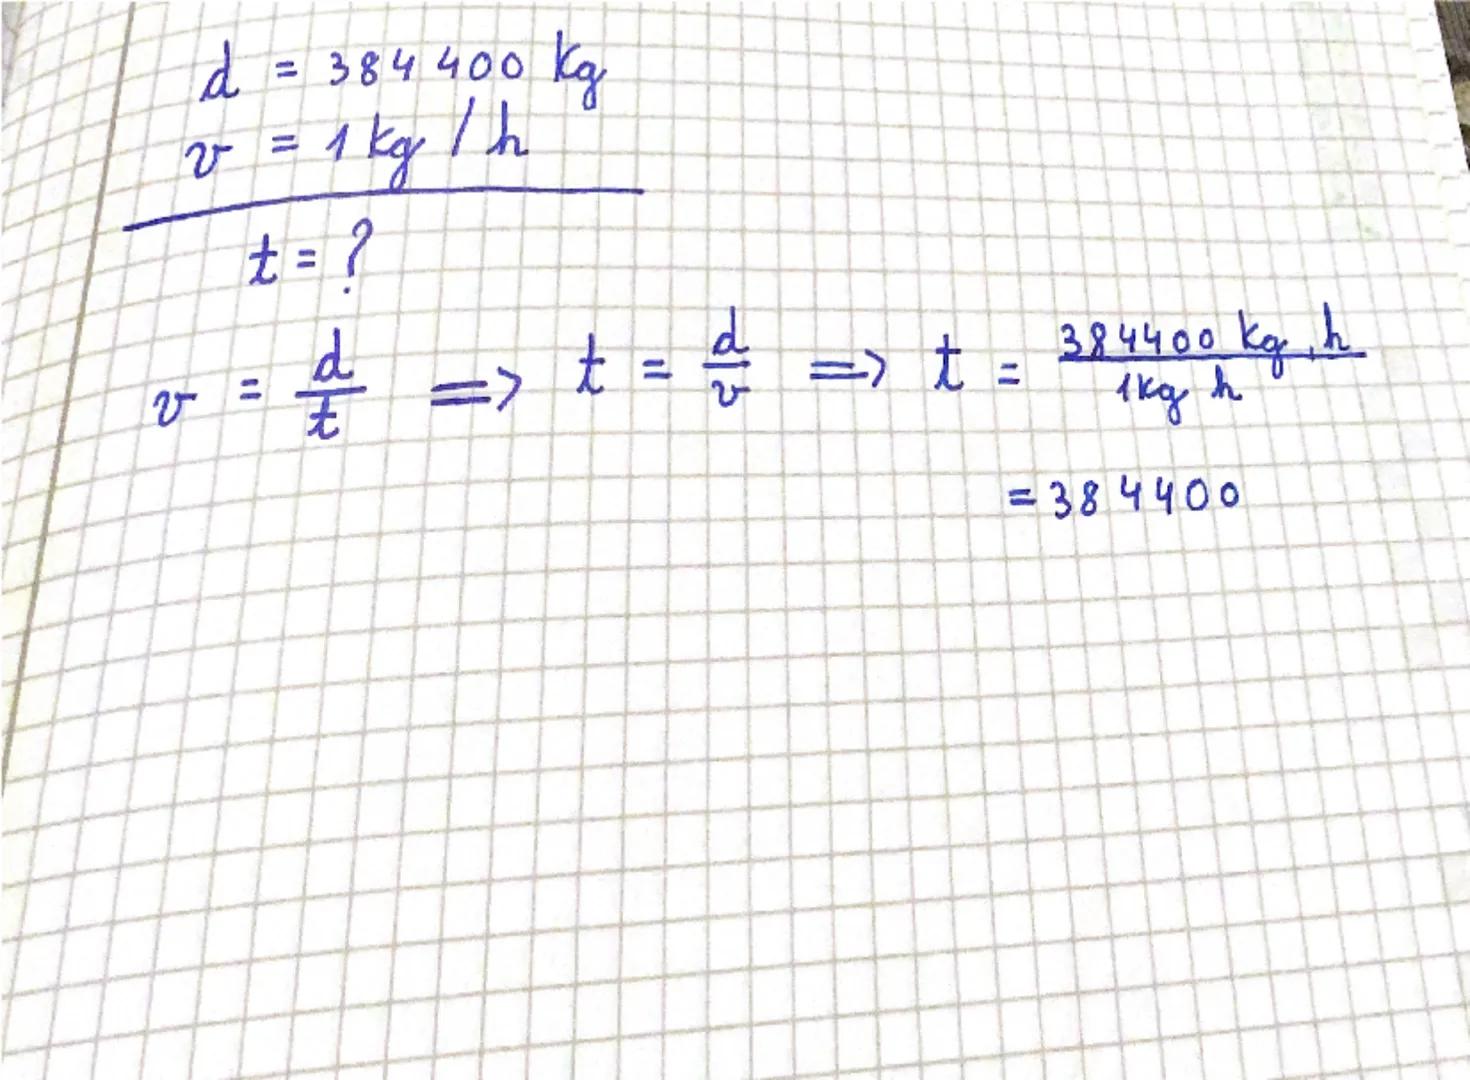 d = 384 400 kg
v = 1 kg / h
t = ?
v = d/t => t = d/v => t = 384400 kg . h / 1kg h
= 384 400